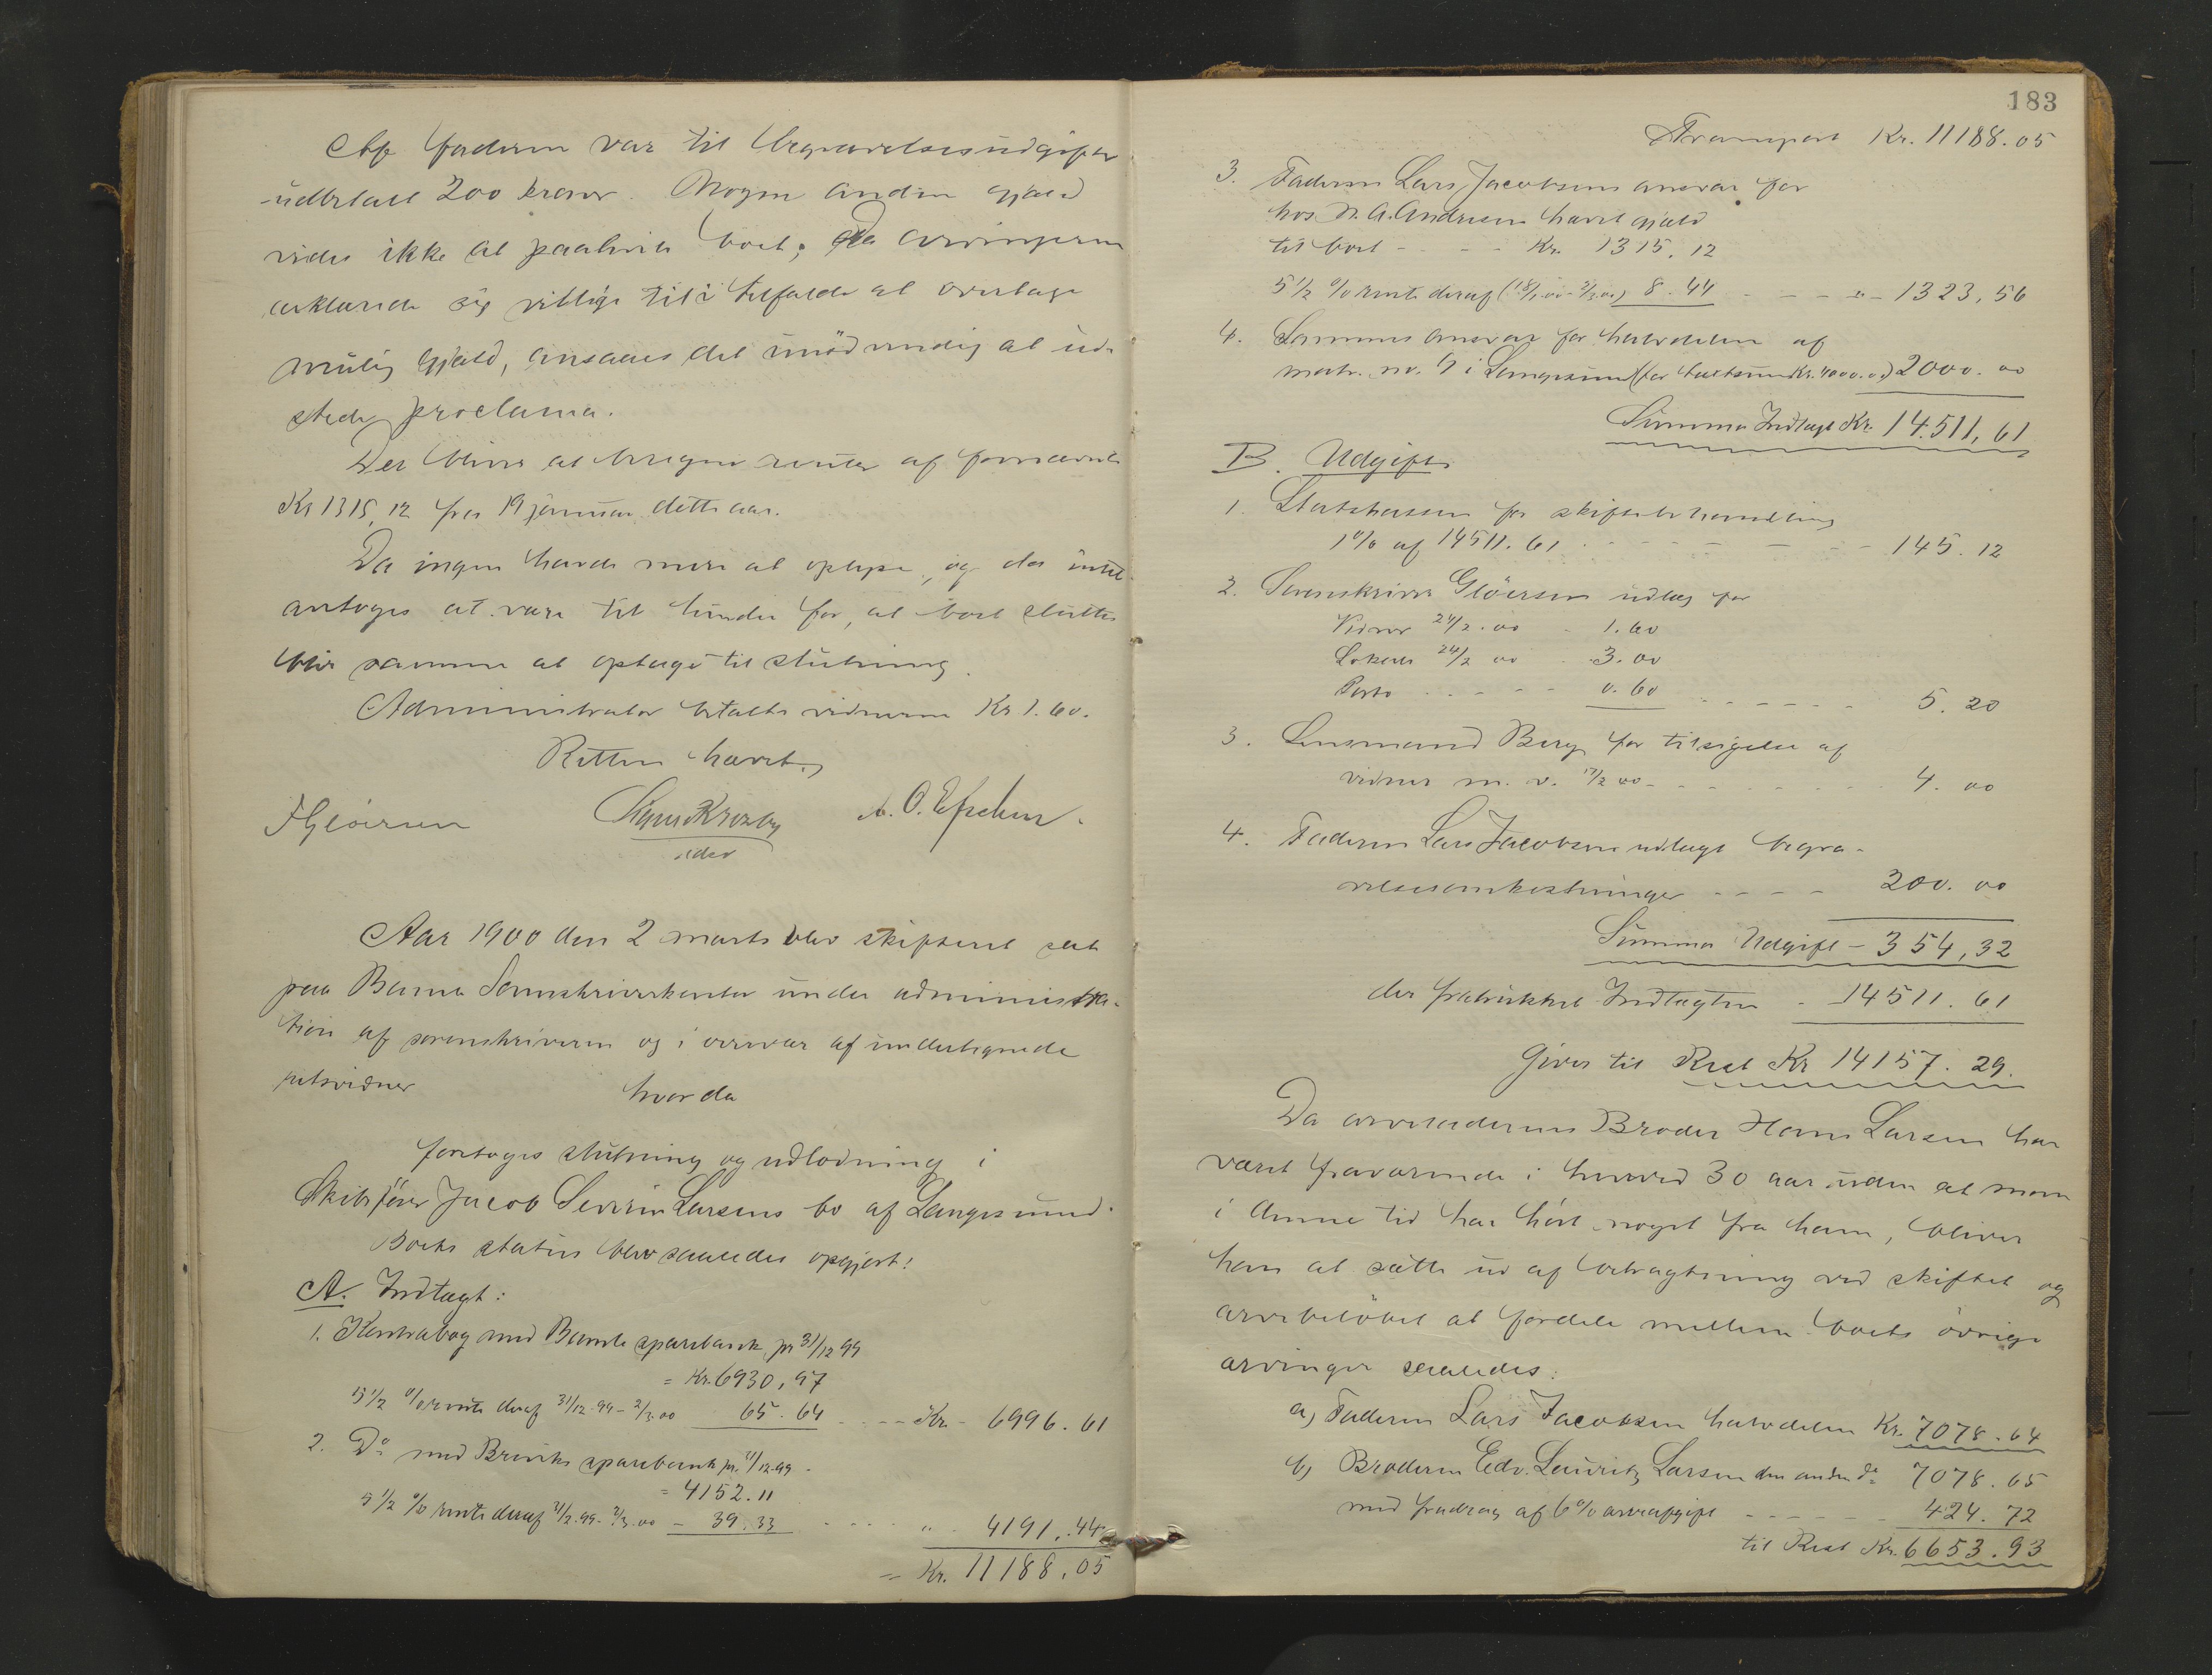 Af faderen var til begravelsesudgifter
udbetalt 200 kroner. Nogen anden gjæld
vides ikke at paahvile boet; da arvingerne
erklærede sig villige til i tilfælde at overtage
mulig gjæld, ansaaes det unödvendig at ud-
stede proclama.
Der bliver at beregne renter af fornævnte
Kr 1315,12 fra 19 januar dette aar.
Da ingen havde mere at oplyse, og da intet
antoges at være til hinder for, at boet sluttes
blir samme at optage til slutning.
Administrator betalte vidnerne Kr 1.60.
Retten hævet,
FGlöersen
A. O.
Aar 1900 den 2 marts blev skifteret sat
paa Bamle Sorenskriverkontor under administra-
tion af sorenskriveren og i overvær af undertegnede
retsvidner
hvor da
foretoges slutning og udlodning i
Skibsförer Jacob Severin Larsens bo af Langesund.
Boets status blev saaledes opgjort:
A. Indtægt:
1. Kontrabog med Bamle sparebank pr 31/12 99
= Kr. 6930,97
5 1/2 % rente deraf 31/12.99 - 2/3.00 65.64 - - - - Kr. - 6996.61
2. Do med Breviks sparebank pr. 31/12.99 -
= 4152.11
5 1/2 % rente deraf 31/12.99 - 2/3.00 - 39.33 - - - - " - 4191.44
= Kr. 11188.05
183
Transport Kr. 11188.05
3. Faderen Lars Jacobsens ansvar for
hos N. A. Andresen havet gjæld
til boet - - - - Kr. 1315.12
5 1/2 % rente deraf (18/1.00 - 2/3.00) 8.44 - - - " - 1323,56
4. Sammes ansvar for halvdelen af
matr. no. 7 i Langesund (for taxtsum Kr. 4000.00) 2000.00
Summa Indtægt Kr. 14.511,61
B. Udgift
1. Statskassen for skiftebehandling
1 % af 14511.61 - - - - - - 145.12
2. Sorenskriver Glöersen udlæg for
Vidner 24/2.00 - 1.60
Lokale 24/2 00 - 3.00
Porto - - - - - 0.60 - - - - - - 5.20
3. Lensmand Berg for tilsigelse af
vidner m. v. 17/2 00 - - - - - - - - 4.00
4. Faderen Lars Jacobsens udlagte begra-
velsesomkostninger - - - - 200.00
Summa Udgift - 354,32
der fratrukket Indtægten - 14511.61
Giver til Rest Kr 14157.29.
Da arveladerens Broder Hans Larsen har
været fraværende i henved 30 aar uden at man
i denne tid har hört noget fra ham, bliver
han at sætte ud af betragtning ved skiftet og
arvebelöbet at fordele mellem boets övrige
arvinger saaledes:
a) Faderen Lars Jacobsen halvdelen Kr. 7078.64
b) Broderen Edv. Lauritz Larsen den anden do 7078.65
med fradrag af 6 % arveafgift - - - - - - 424.72
til Rest Kr. 6653.93